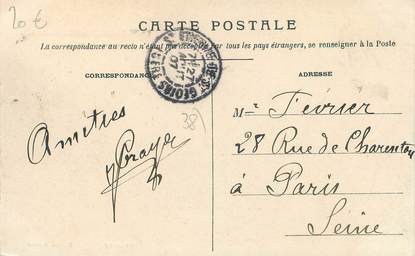 20 €
CARTE POSTALE
La correspondance au recto n'étant pas acceptée par tous les pays étrangers, se renseigner à la Poste
CORRESPONDANCE
ADRESSE
27
07
ISÈRE
38
Amitiés
Mr Février
28 Rue de Charenton
à Paris
Seine